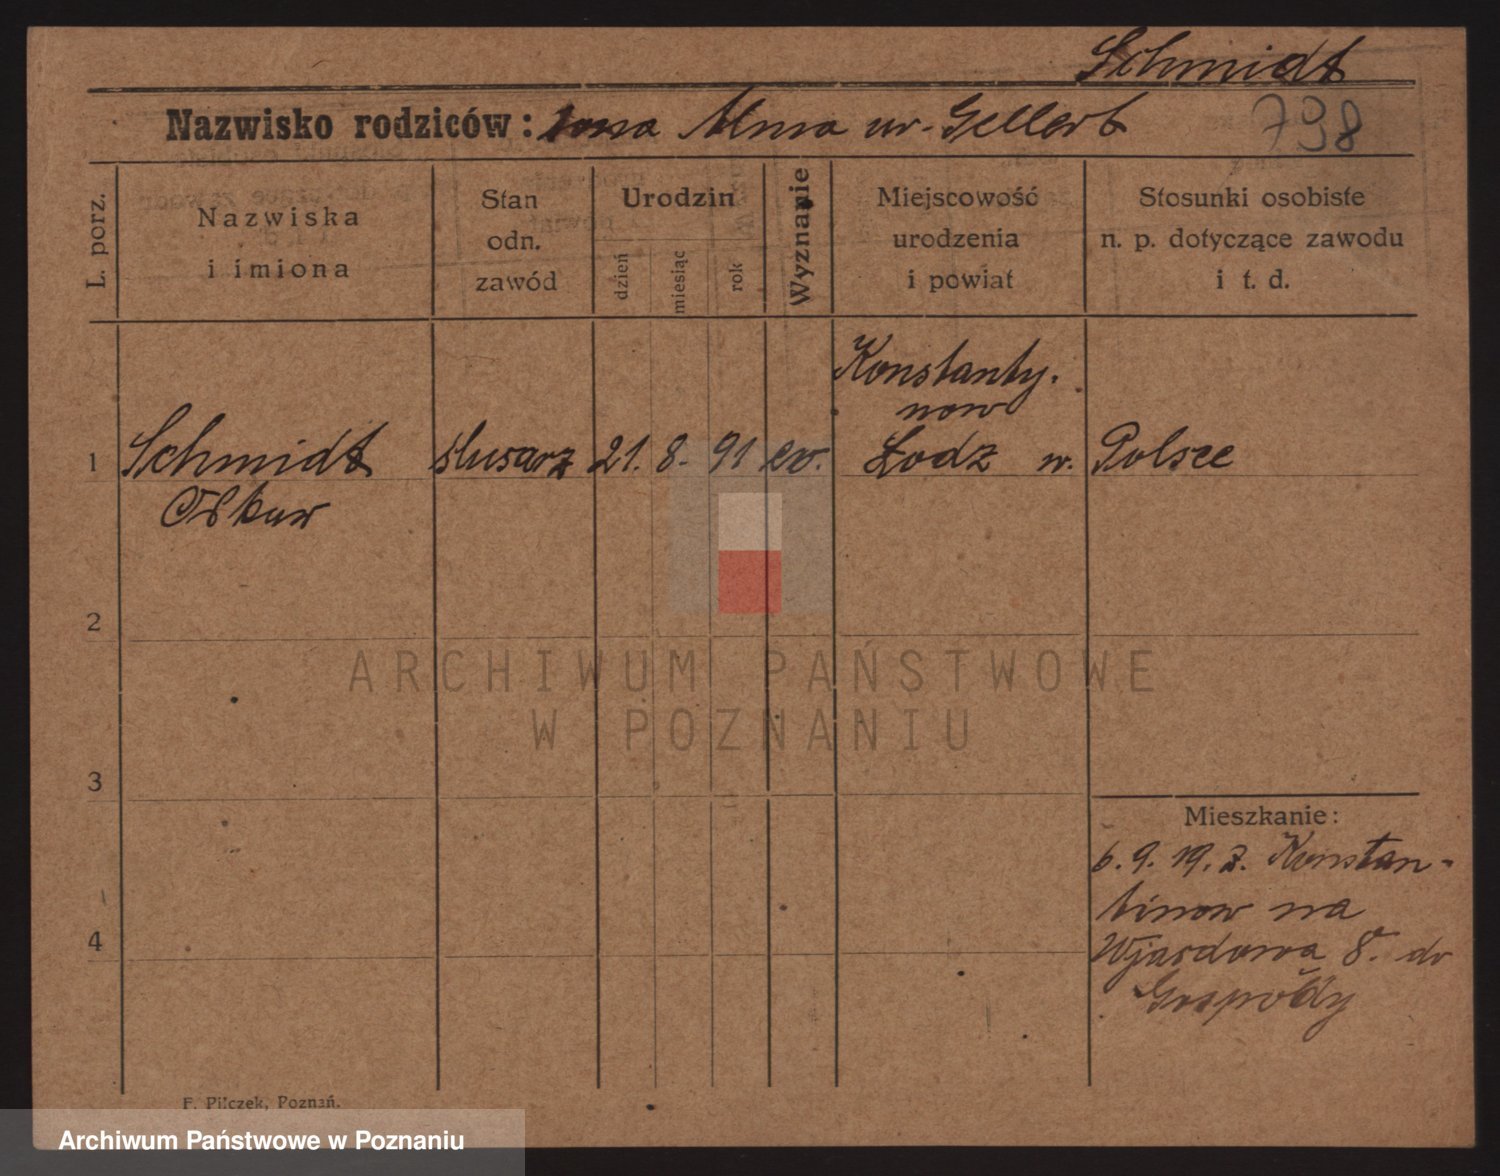 Schmidt
Nazwisko rodziców: Alma ur. Gellert
798
L. porz.
Nazwiska
i imiona
Stan
odn.
zawód
Urodzin
dzień
miesiąc
rok
Wyznanie
Miejscowość
urodzenia
i powiat
Stosunki osobiste
n. p. dotyczące zawodu
i t. d.
Konstanty-
now
1 Schmidt ślusarz 21. 8. 91 ev. Łodz w. Polsce
Oskar
2
3
4
Mieszkanie:
6. 9. 19. z. Konstan-
tinow na
8. do
Gospody
F. Pilczek, Poznań.
ARCHIWUM PAŃSTWOWE
W POZNANIU
Archiwum Państwowe w Poznaniu